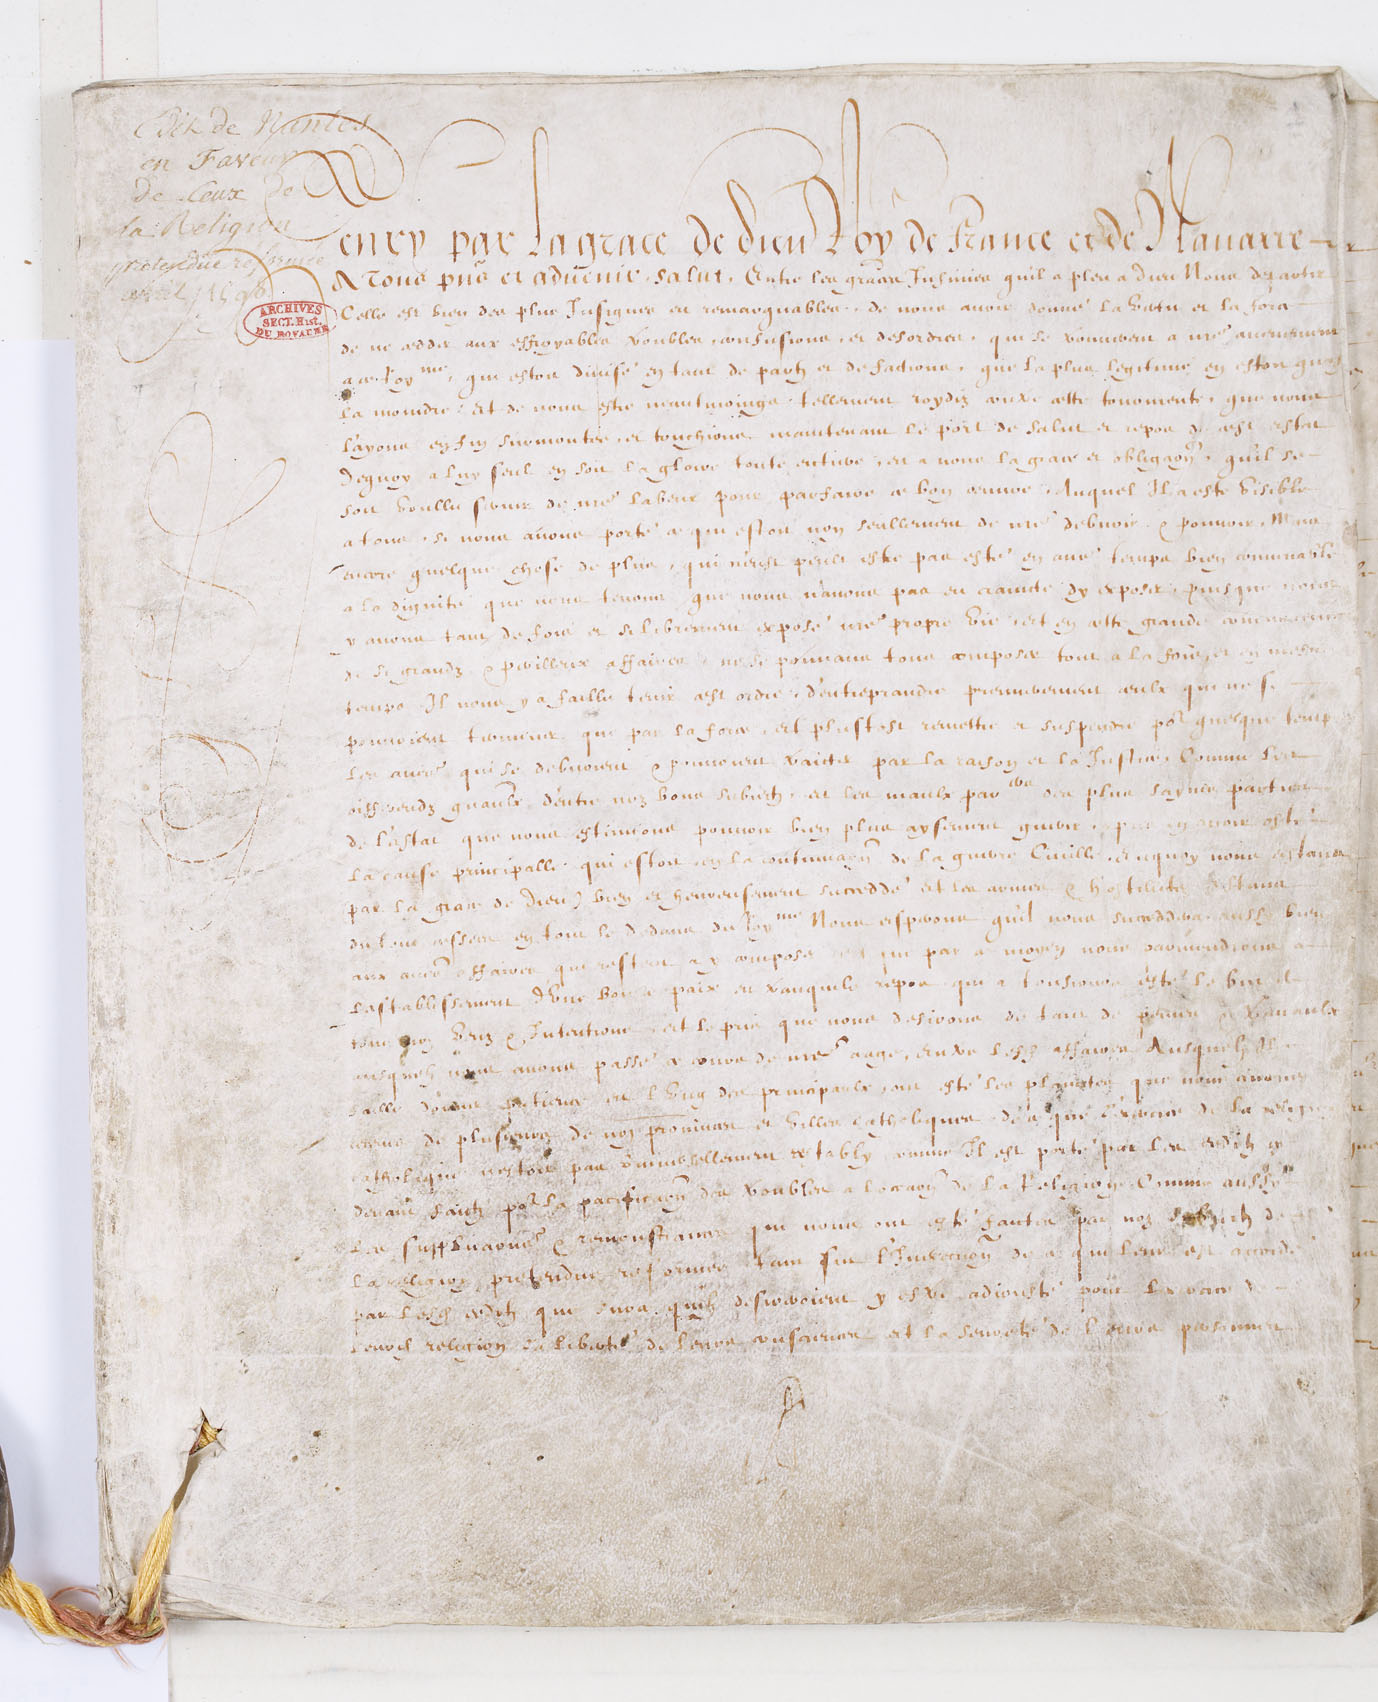 Edit de Nantes
en Faveur
de Ceux de
la Religion
pretendue reformée
avril 1598
ARCHIVES
SECT. Hist.
DU ROYAUME
Henry par la grace de dieu Roy de France et de Nauarre
A Tous pñs et aduenir, Salut, Entre les graces Infinies quil a pleu a Dieu Nous departir
Celle est bien des plus Insignes et remarquables, de nous auoir donné la vertu et la force
de ne cedder aux effroyables troubles, confusions, et desordres, qui se trouuerent a nre aduenement
a ce Roy.me, qui estoit diuisé en tant de partz et de factions, que la plus legitime en estoit quasi
la moindre, Et de nous estre neantmoings tellement roydiz contre ceste tourmente, que nous
layons enfin surmontee, et touchions maintenant le port de salut et repos de cest estat
Dequoy a luy seul en soit la gloire toute entiere, et a nous la grace et obligaon, quil se
soit voullu seruir de nre labeur pour parfaire ce bon oeuure, Auquel Il a esté visible
a tous, si nous auons porté ce qui estoit non seullement de nre debuoir & pouuoir, Mais
encore quelque chose de plus, qui neust peult estre pas esté en autre temps bien conuenable
a la dignité que nous tenons, que nous nauons pas eu craincte dy exposer, puisque nous
y auons tant de fois et si librement exposé nre propre vie, Et en ceste grande concurrence
de si grandz & perilleux affaires, ne se pouuans tous composer tout a la fois, et en mesme
temps Il nous y a faillu tenir cest ordre, dentreprendre premierement ceulx qui ne se
pouuoient terminer que par la force, Et plustost remettre et suspendre pour quelque temps
les autres qui se debuoient & pouuoient traicter par la raison et la Justice, Comme les
differendz gnaulx dentre noz bons subiectz, et les maulx par.ers des plus saynes parties
de lestat que nous estimions pouuoir bien plus aysement guerir, apres en auoir osté
la cause principalle, qui estoit en la continuaon de la guerre Ciuille, Enquoy nous estans
par la grace de Dieu) bien et heureusement succeddé et les armes & hostilitez estans
du tout cessees en tout le dedans du Roy.me Nous esperons quil nous succeddera aussy bien
aux autres affaires qui restent a y composer et que par ce moyen nous paruiendrons a
lestablissement dune bonne paix et tranquile repos qui a tousiours esté le but de
tous noz veuz & Intentions, et le prix que nous desirons de tant de peines & trauaulx
ausquelz nous auons passé ce cours de nre aage, Entre lesd. affaires Ausquelz Il a
faillu donner patience et lvng des principaulx, ont esté les plainctes que nous auons
receues de plusieurs de noz prouinces et villes catholiques, de ce que lexercice de la religion
catholique nestoit pas vniuersellement restably comme Il est porté par les edictz cy
deuant faictz pour la pacificaon des troubles a loccaon de la Religion, Comme aussy
les supplicaons & remonstrances qui nous ont esté faictes par noz subiectz de
la religion pretendue reformee, tant sur lInexecuon de ce qui leur est accordé
par lesd. edictz que sur ce quilz desireroient y estre adiousté pour lexercice de
leurd. religion la liberté de leurs consciences et la seureté de leurs personnes